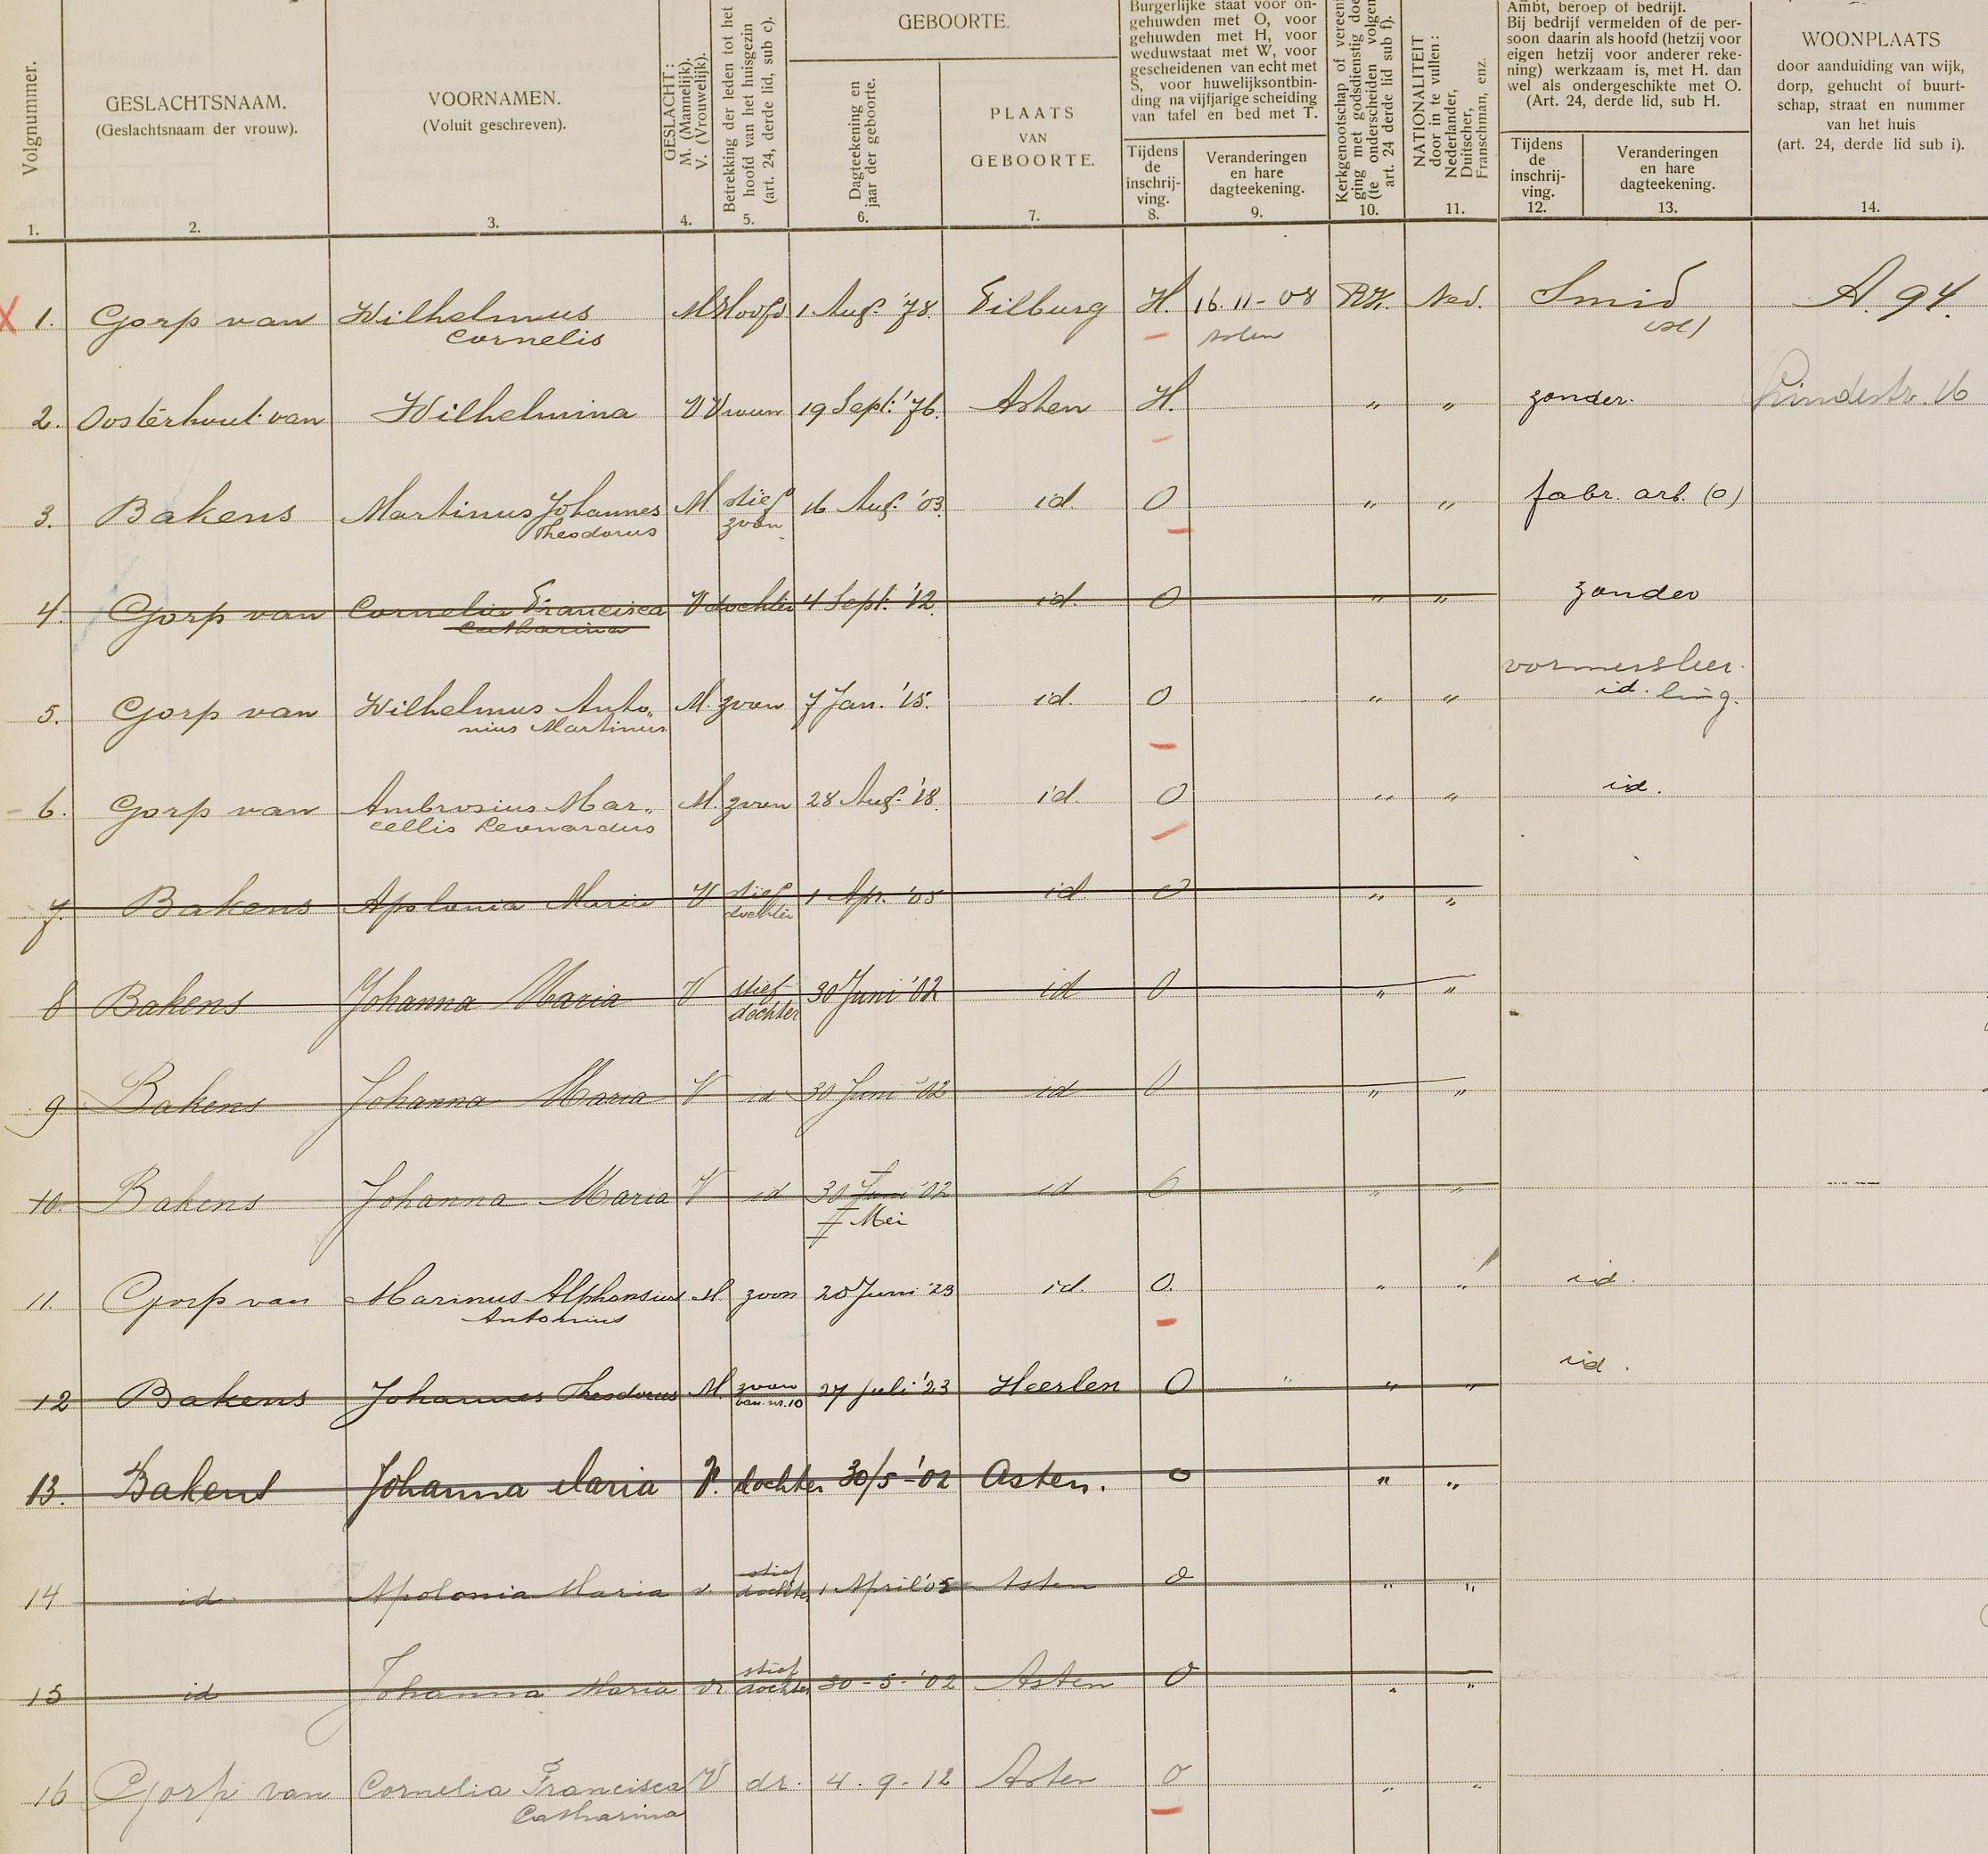 Volgnummer.
1.
GESLACHTSNAAM.
(Geslachtsnaam der vrouw).
2.
VOORNAMEN.
(Voluit geschreven).
3.
GESLACHT:
M. (Mannelijk).
V. (Vrouwelijk).
4.
Betrekking der leden tot het
hoofd van het huisgezin
(art. 24, derde lid, sub c).
5.
GEBOORTE.
Dagteekening en
jaar der geboorte.
6.
PLAATS
VAN
GEBOORTE.
7.
Burgerlijke staat voor on-
gehuwden met O, voor
gehuwden met H, voor
weduwstaat met W, voor
gescheidenen van echt met
S, voor huwelijksontbin-
ding na vijfjarige scheiding
van tafel en bed met T.
Tijdens
de
inschrij-
ving.
8.
Veranderingen
en hare
dagteekening.
9.
Kerkgenootschap of vereeni
ging met godsdienstig doe
(te onderscheiden volgen
art. 24 derde lid sub f).
10.
NATIONALITEIT
door in te vullen:
Nederlander,
Duitscher,
Franschman, enz.
11.
Ambt, beroep of bedrijf.
Bij bedrijf vermelden of de per-
soon daarin als hoofd (hetzij voor
eigen hetzij voor anderer reke-
ning) werkzaam is, met H. dan
wel als ondergeschikte met O.
(Art. 24, derde lid, sub H.
Tijdens
de
inschrij-
ving.
12.
Veranderingen
en hare
dagteekening.
13.
WOONPLAATS
door aanduiding van wijk,
dorp, gehucht of buurt-
schap, straat en nummer
van het huis
(art. 24, derde lid sub i).
14.
X 1. Gorp van Wilhelmus M Hoofd 1 Aug. '78. Tilburg H. 16.11-08 RK. Ned. Smid A. 94.
Cornelis Asten
2. Oosterhout van Wilhelmina V Vrouw 19 Sept. '76. Asten H. " " zonder. Lindestr. 16
3. Bakens Martinus Johannes M. stief 16 Aug. '03. id. O " " fabr. arb. (o)
Theodorus zoon
4. Gorp van Cornelia Francisca V dochter 4 Sept. '12. id. O " " zonder
Catharina
vormersleer
5. Gorp van Wilhelmus Anto„ M. zoon 7 Jan. '15. id. O " " id. ling.
nius Martinus
6. Gorp van Ambrosius Mar„ M. zoon 28 Aug. '18. id. O " " id.
cellis Leonardus
7. Bakens Apolonia Maria V stief 1 Apr. '05 id. O " "
dochter
8 Bakens Johanna Maria V stief 30 Juni '02 id O " "
dochter
9 Bakens Johanna Maria V id 30 Juni '02 id O " "
10. Bakens Johanna Maria V id 30 Juni '02 id O " "
Mei
11. Gorp van Marinus Alphonsius M zoon 20 Juni '23 id. O. " " id.
Antonius
12 Bakens Johannes Theodorus M. zoon 27 Juli '23 Heerlen O " " " id.
van nr. 10
13. Bakens Johanna Maria V. dochter 30/5-'02 Asten. O " "
14 id Apolonia Maria v. stief 1 April '05 Asten O " "
dochter
15 id Johanna Maria vr stief 30-5-'02 Asten O " "
dochter
16 Gorp van Cornelia Francisca V dr. 4.9-12 Asten O " "
Catharina